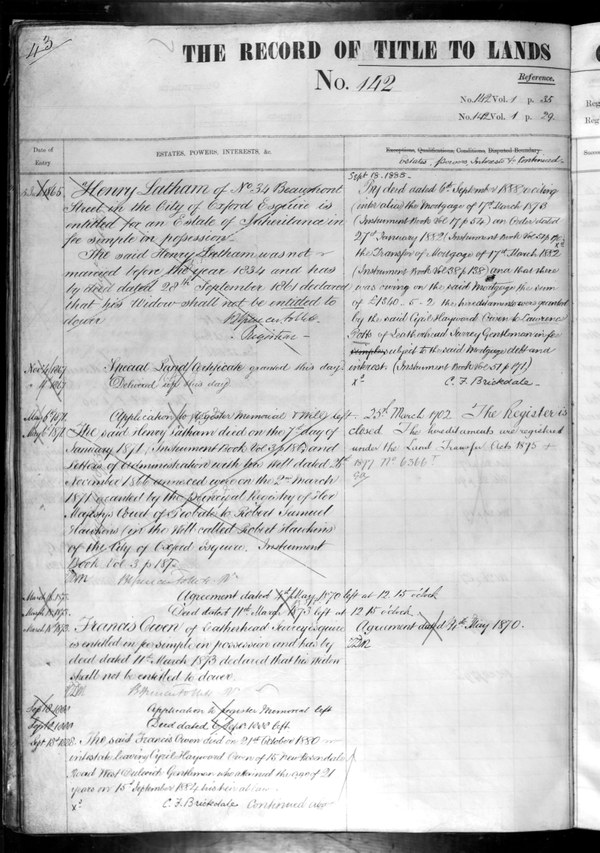 43
THE RECORD OF TITLE TO LANDS
No. 142
Reference.
No. 142 Vol. 1 p. 35
No. 142 Vol. 1 p. 29
Date of
Entry
ESTATES, POWERS, INTERESTS, &c.
Exceptions, Qualifications, Conditions, Disputed Boundary
Estates, Powers, Interests & Continued
1865
Henry Latham of No. 34 Beaumont
Street in the City of Oxford Esquire is
entitled for an Estate of Inheritance in
fee simple in possession
The said Henry Latham was not
married before the year 1834 and has
by deed dated 28th September 1861 declared
that his Widow shall not be entitled to
dower
Registrar
Special Land Certificate granted this day
Delivered up this day
Application to register Memorial & Will left
The said Henry Latham died on the 7th day of
January 1871, (Instrument Book Vol 3 p 186) and
Letters of Administration with his Will dated
November 1866 annexed were on the 2nd March
1871 granted by the principal Registry of Her
Majestys Court of Probate to Robert Samuel
Hawkins (in the Will called Robert Hawkins)
of the City of Oxford Esquire. Instrument
Book Vol 3 p 187.
Agreement dated 4th May 1870 left at 12.15 o'clock
Deed dated 11th March 1873 left at 12.15 o'clock
Francis Owen of Leatherhead Surrey Esquire
is entitled in fee simple in possession and has by
deed dated 11th March 1873 declared that his widow
shall not be entitled to dower
Application to register Memorial left
Deed dated 6 Sept 1888 left
Sept 18th 1888
The said Francis Owen died on 21st October 1880
intestate leaving Cyril Haywood Owen of 15
Road West Dulwich Gentleman who attained the age of 21
years on 15th September 1884 his heir at law
x2
C. F. Brickdale Continued over
Sept 18. 1888.
By deed dated 6th September 1888 reciting
(inter alia) the Mortgage of 17th March 1873
(Instrument Book Vol 17 p 54) an Order dated
27th January 1882 (Instrument Book Vol
the Transfer of Mortgage of 17th March 1882
(Instrument Book Vol 38 p 138) and that there
was owing on the said Mortgage the sum
of £1560-5-2 the hereditaments were granted
by the said Cyril Haywood Owen to Lawrence
Potts of Leatherhead Surrey Gentleman in fee
simple subject to the said mortgage debt and
interest. (Instrument Book Vol 51 p 171)
x2
C. F. Brickdale
25th March 1902. The Register is
closed. The hereditaments are registered
under the Land Transfer Acts 1875 &
1897 No 6366
Agreement dated 4th May 1870.